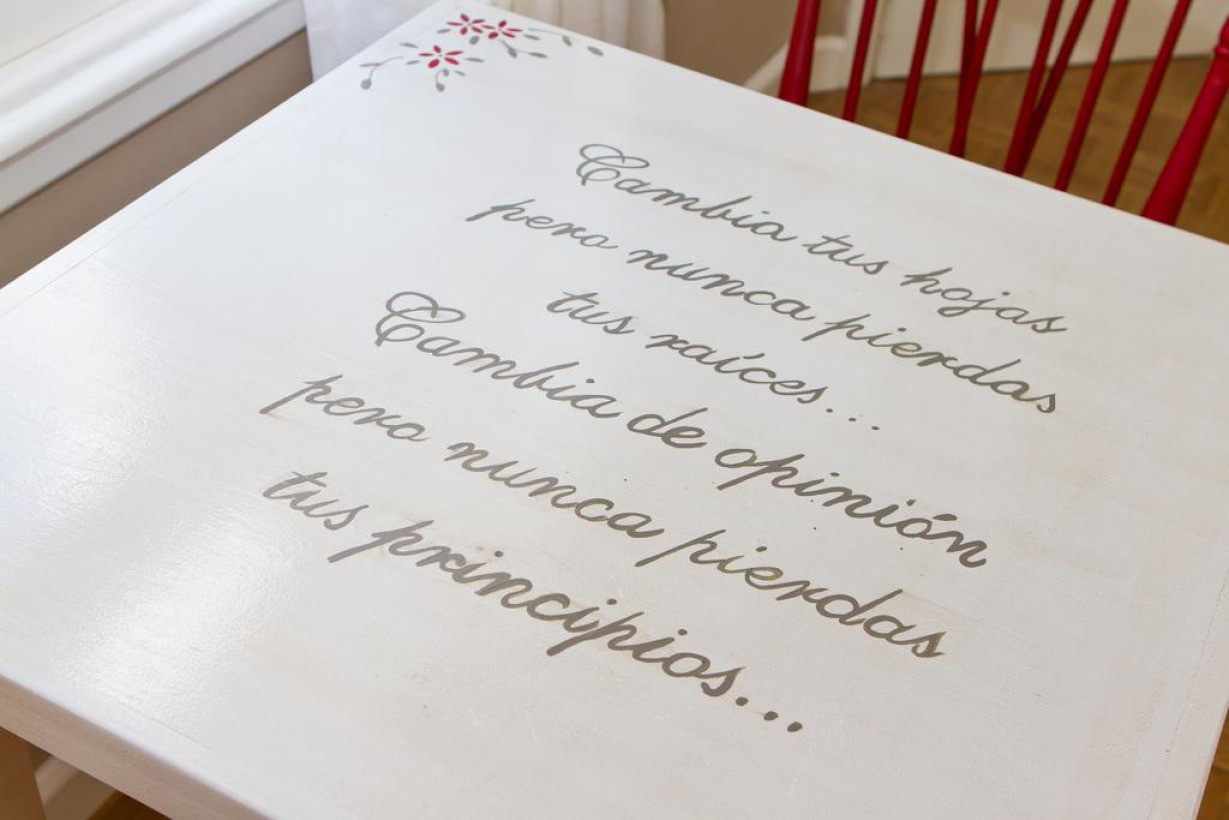 Cambia tus hojas
pero nunca pierdas
tus raíces...
Cambia de opinión
pero nunca pierdas
tus principios...